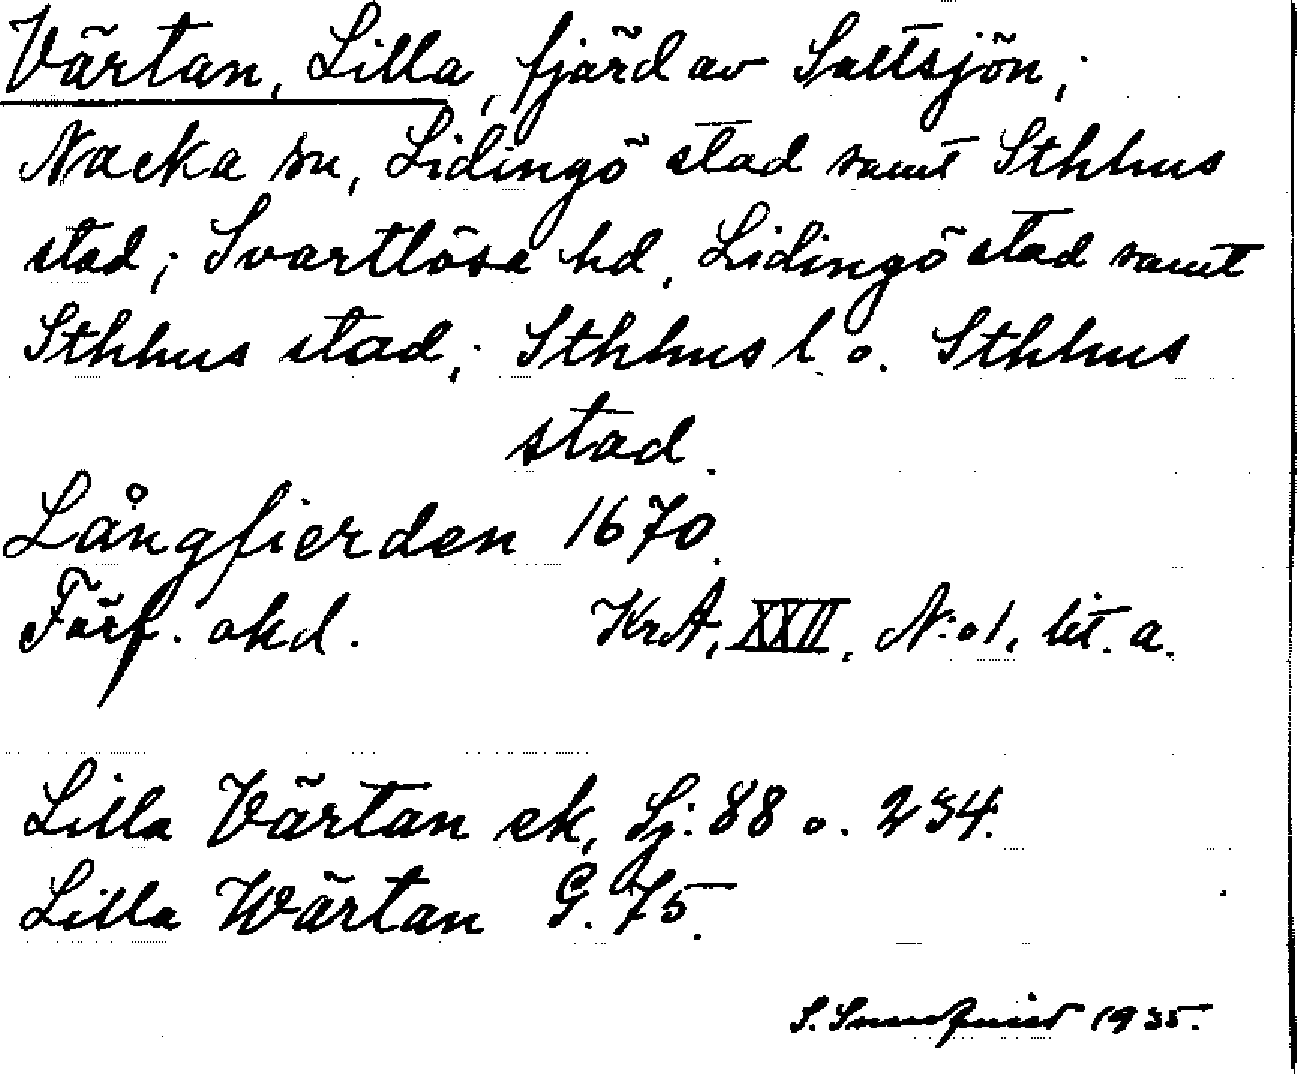 Värtan, Lilla, fjärd av Saltsjön;
Nacka sn, Lidingö stad samt Sthlms
stad; Svartlösa hd, Lidingö stad samt
Sthlms stad; Sthlms l. o. Sthlms
stad.
Långfierden 1670.
Förf. okd. KrA, XXII, N:o 1, lit. a.
Lilla Värtan ek, Lj. 88 o. 234.
Lilla Wärtan G. 75.
S. 1935.